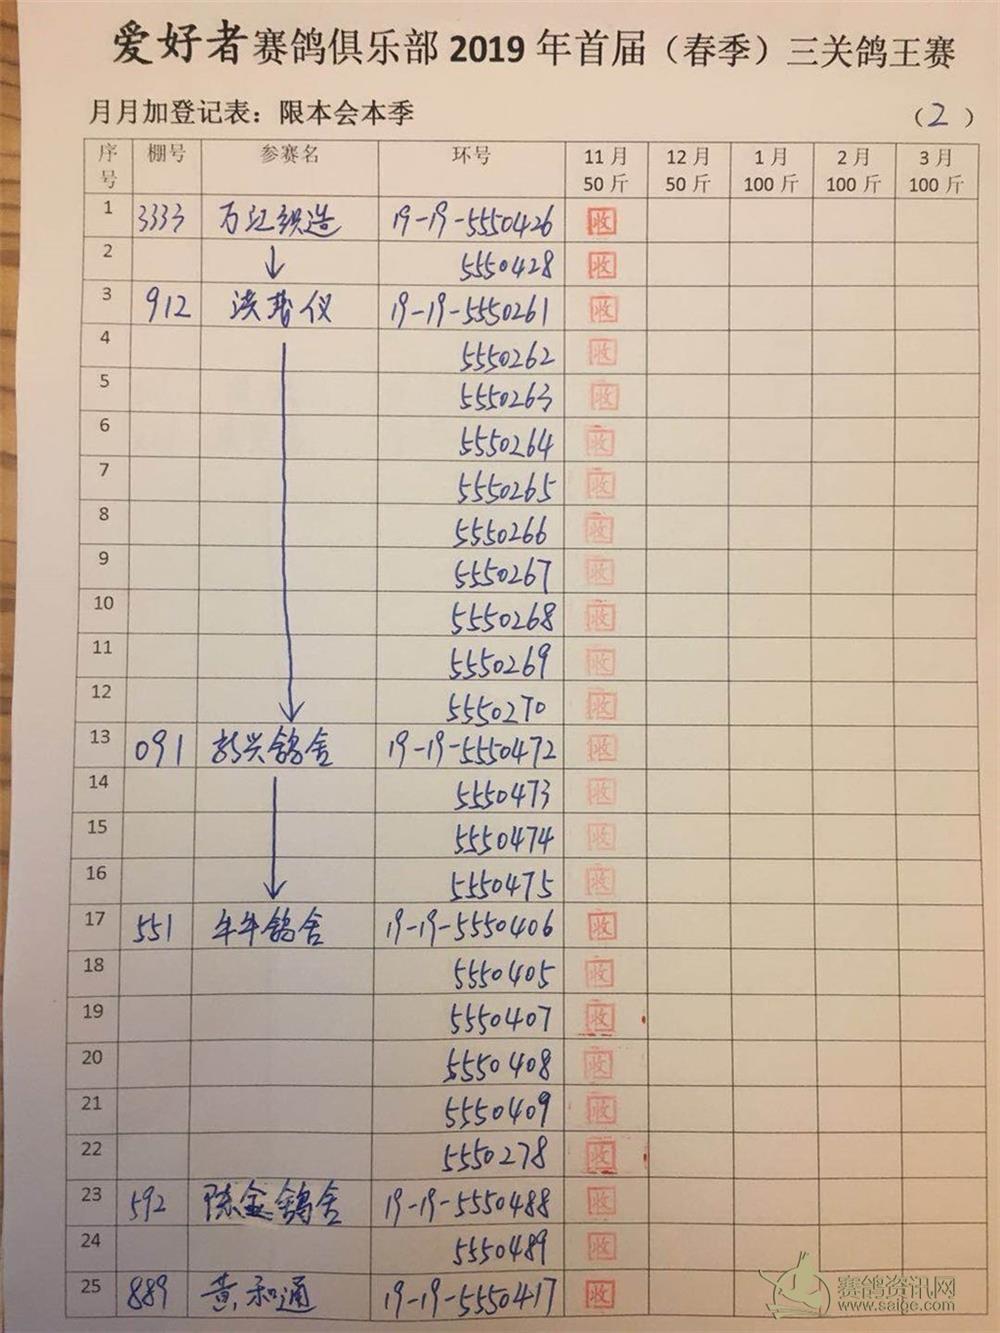 爱好者赛鸽俱乐部 2019 年首届（春季）三关鸽王赛
月月加登记表：限本会本季 （2）
序号 棚号 参赛名 环号 11月 50斤 12月 50斤 1月 100斤 2月 100斤 3月 100斤
1 3333 万江织造 19-19-5550426 收
2 ↓ 5550428 收
3 912 洪 仪 19-19-5550261 收
4 5550262 收
5 5550263 收
6 5550264 收
7 5550265 收
8 5550266 收
9 5550267 收
10 5550268 收
11 5550269 收
12 5550270 收
13 091 新兴鸽舍 19-19-5550472 收
14 5550473 收
15 5550474 收
16 5550475 收
17 551 牛牛鸽舍 19-19-5550406 收
18 5550405 收
19 5550407 收
20 5550408 收
21 5550409 收
22 5550278 收
23 592 陈金鸽舍 19-19-5550488 收
24 5550489 收
25 889 黄和通 19-19-5550417 收
赛鸽资讯网
www.saige.com